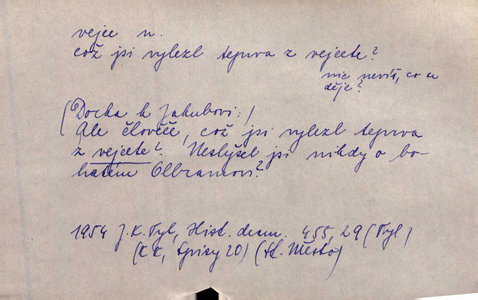 vejce n.
což jsi vylezl teprva z vejcete?
nic nevíš, co se
děje?
(Dorka k Jakubovi:)
Ale člověče, což jsi vylezl teprva
z vejcete? Neslyšel jsi nikdy o bo-
hatém Olbramovi?
1954 J. K. Tyl, Hist. dram. 455, 29 (Tyl)
(KK, Spisy 20) (St. Město)